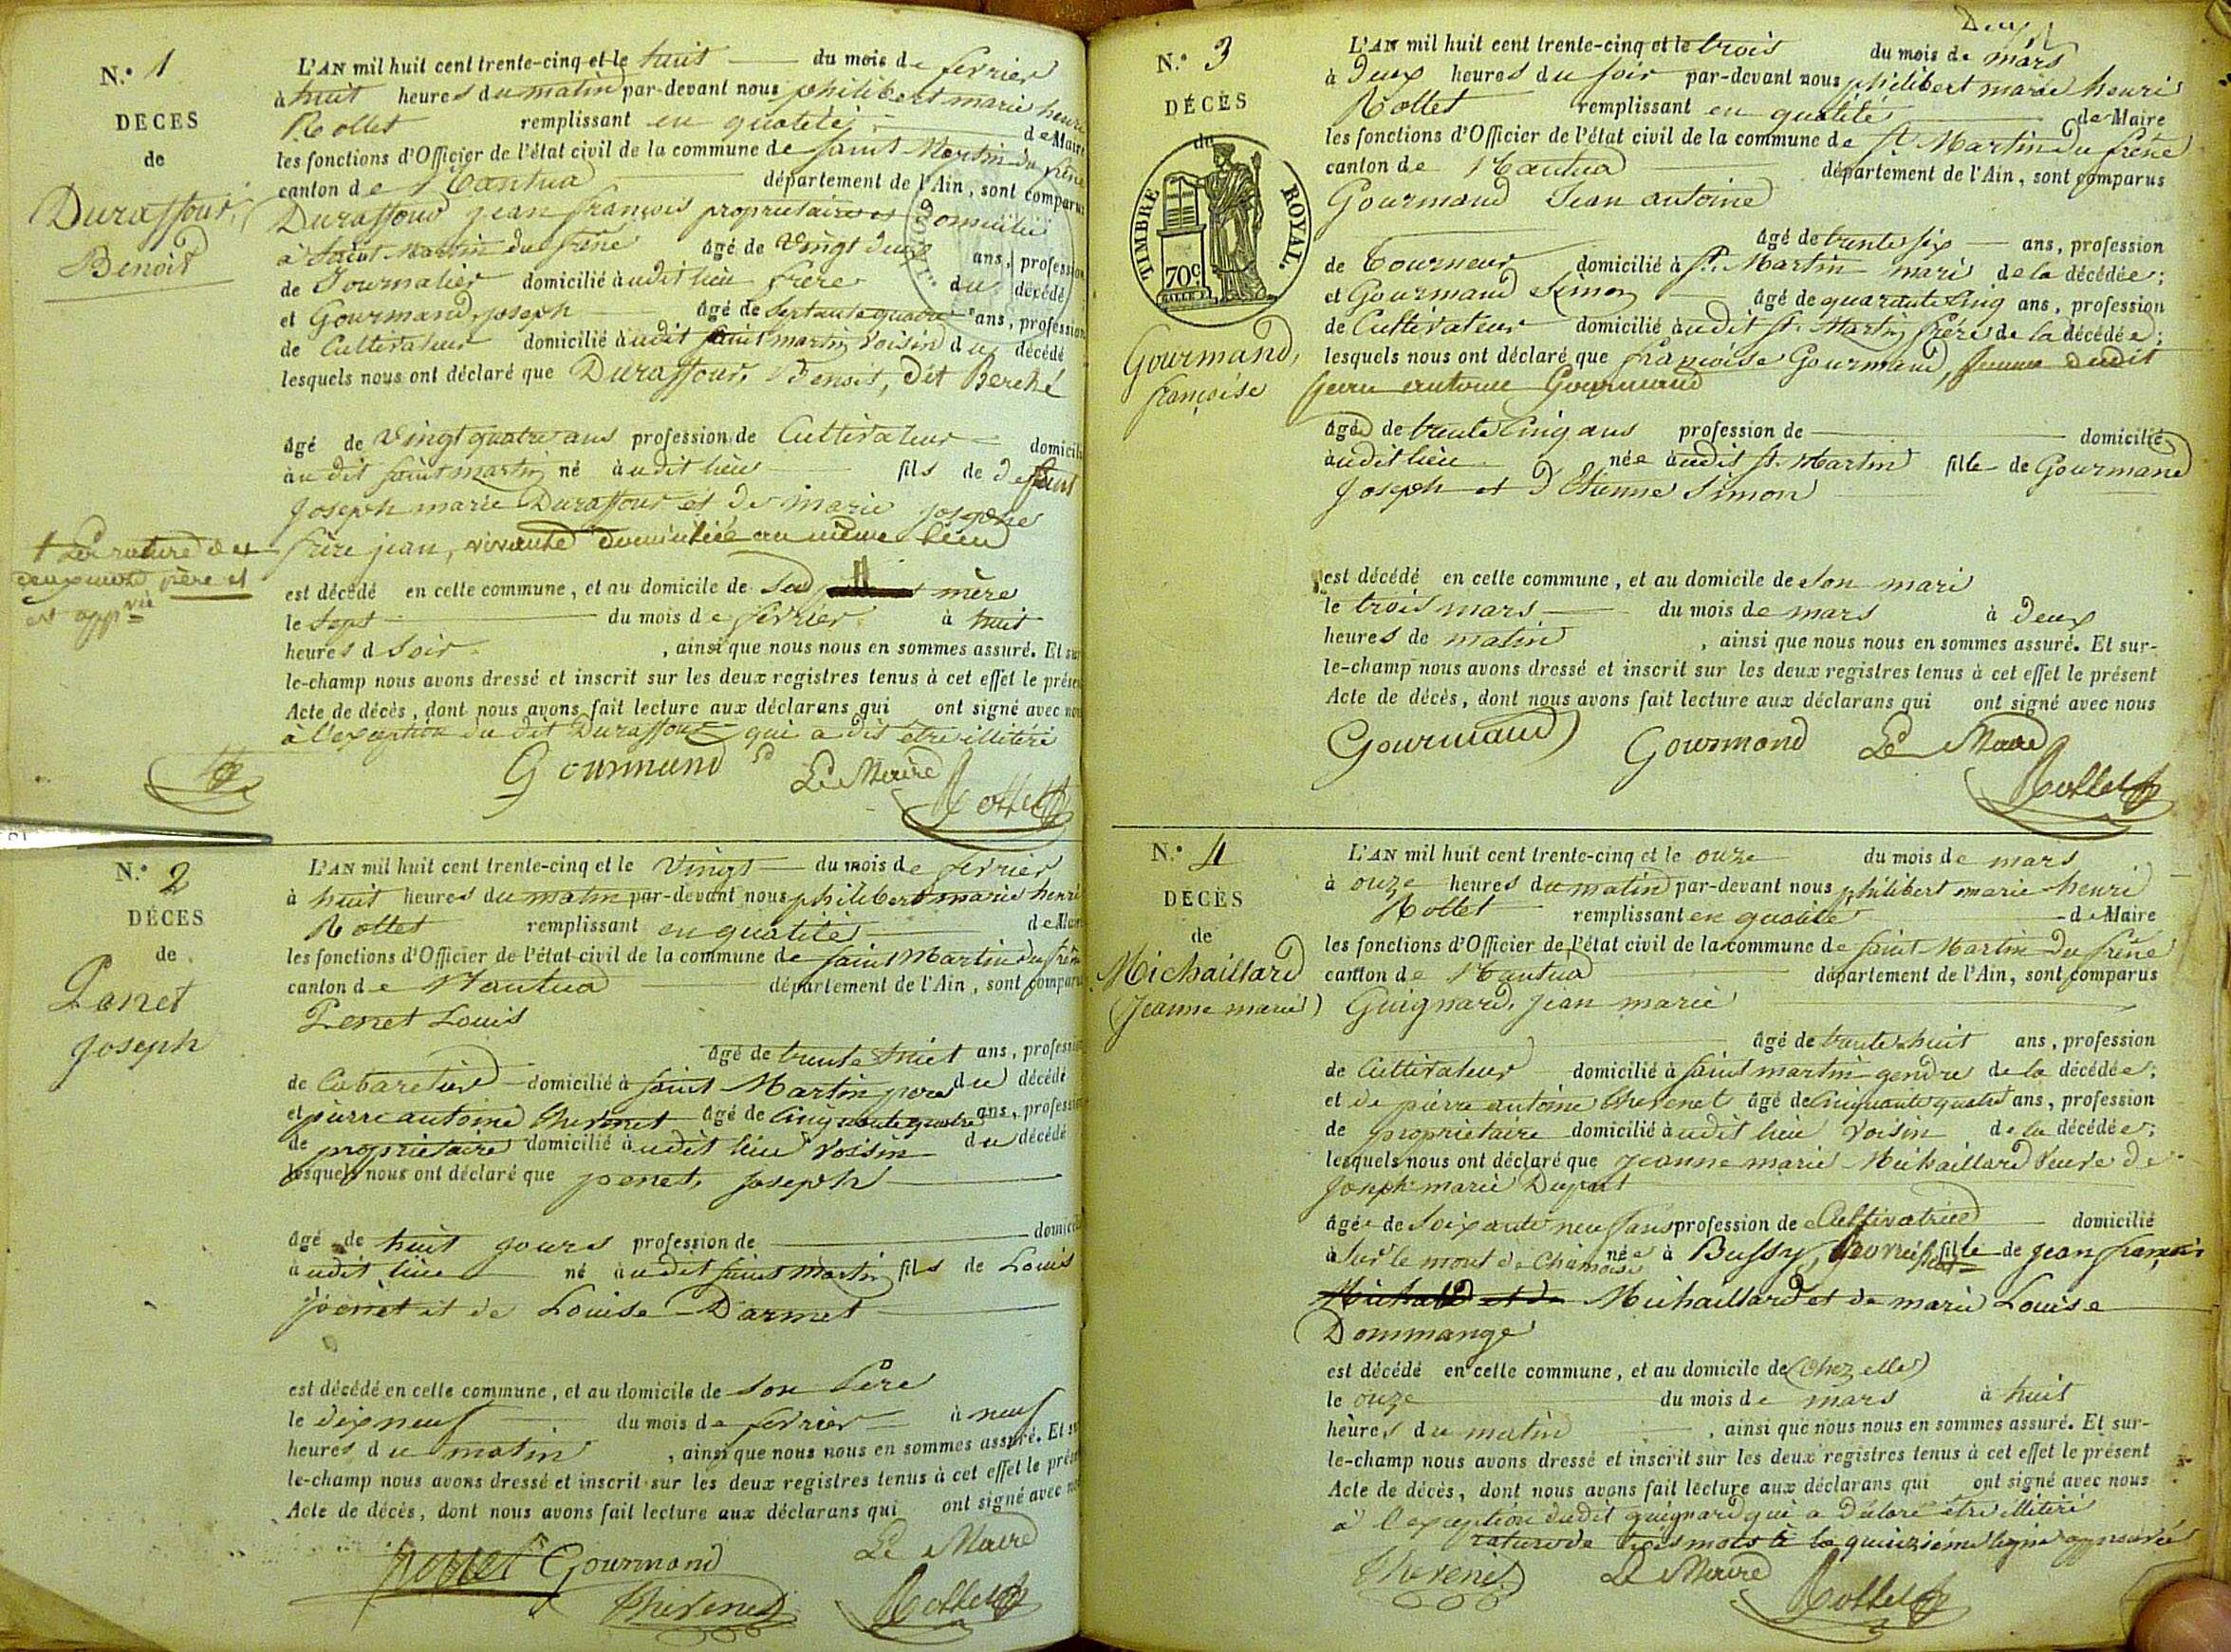 N.° 1
DECES
de
Duraffour,
Benoit
L'AN mil huit cent trente-cinq et le huit du mois de fevrier
à huit heures du matin par-devant nous philibert marie henri
Rollet remplissant en qualité de Maire
les fonctions d'Officier de l'état civil de la commune de saint Martin du frene
canton de Nantua département de l'Ain, sont comparus
Duraffour jean françois proprietaire domicilié
à Saint Martin du frêne âgé de vingt deux ans, profession
de Journalier domicilié à udit lieu frère du décédé
et Gourmand, joseph âgé de septante quatre ans, profession
de Cultivateur domicilié à udit saint martin voisin du décédé
lesquels nous ont déclaré que Duraffour, Benoit, dit Berché
âgé de vingt quatre ans profession de Cultivateur domicilié
à udit saint martin né à udit lieu fils de defunt
joseph marie Duraffour et de marie josephe
frère jean, vivante domiciliée au même lieu
† La rature de
deux mots père et
est appvée
est décédé en celle commune, et au domicile de sa mère
le sept du mois de fevrier à huit
heures d soir, ainsi que nous nous en sommes assuré. Et sur
le-champ nous avons dressé et inscrit sur les deux registres tenus à cet effet le présent
Acte de décès, dont nous avons fait lecture aux déclarans qui ont signé avec nous
à l'exception du dit Duraffour qui a dit être illitéré
Gourmand Le Maire
Rollet
N.° 2
DÉCES
de
Panet
joseph
L'AN mil huit cent trente-cinq et le vingt du mois de fevrier
à huit heures du matin par-devant nous philibert marie henri
Rollet remplissant en qualité de Maire
les fonctions d'Officier de l'état civil de la commune de saint Martin du frêne
canton de Nantua département de l'Ain, sont comparus
Penet Louis
âgé de trente huit ans, profession
de Cabaretier domicilié à saint Martin pere du décédé
et pierre antoine thevenet âgé de cinquante quatre ans, profession
de proprietaire domicilié à udit lieu voisin du décédé
lesquels nous ont déclaré que penet, joseph
âgé de huit jours profession de domicilié
à udit lieu né à udit saint Martin fils de Louis
penet et de Louise Darmet
est décédé en celle commune, et au domicile de son père
le dix neuf du mois de fevrier à neuf
heures du matin, ainsi que nous nous en sommes assuré. Et sur
le-champ nous avons dressé et inscrit sur les deux registres tenus à cet effet le présent
Acte de décès, dont nous avons fait lecture aux déclarans qui ont signé avec nous
Gourmand Le Maire
Thevenet Rollet
Deux
N.° 3
DÉCÈS
de
TIMBRE ROYAL.
70c.
Gourmand,
françoise
L'AN mil huit cent trente-cinq et le trois du mois de mars
à Deux heures du soir par-devant nous philibert marie henri
Rollet remplissant en qualité de Maire
les fonctions d'Officier de l'état civil de la commune de st Martin du frêne
canton de Nantua département de l'Ain, sont comparus
Gourmand Jean antoine
âgé de trente six ans, profession
de Tourneur domicilié à st. Martin mari de la décédée;
et Gourmand simon âgé de quarante cinq ans, profession
de Cultivateur domicilié à udit st. Martin frère de la décédée;
lesquels nous ont déclaré que françoise Gourmand, femme dudit
jean antoine Gourmand
âgée de trente cinq ans profession de domicilié
à udit lieu née à udit st. Martin fille de Gourmand
joseph et d'Etienne simon
est décédé en celle commune, et au domicile de son mari
le trois mars du mois de mars à deux
heures de matin, ainsi que nous nous en sommes assuré. Et sur-
le-champ nous avons dressé et inscrit sur les deux registres tenus à cet effet le présent
Acte de décès, dont nous avons fait lecture aux déclarans qui ont signé avec nous
Gourmand Gourmond Le Maire
Rollet
N.° 4
DECÈS
de
Michaillard
(jeanne marie)
L'AN mil huit cent trente-cinq et le onze du mois de mars
à onze heures du matin par-devant nous philibert marie henri
Rollet remplissant en qualité de Maire
les fonctions d'Officier de l'état civil de la commune de saint Martin du frêne
canton de Nantua département de l'Ain, sont comparus
Guignard, jean marie
âgé de trente huit ans, profession
de Cultivateur domicilié à saint martin gendre de la décédée;
et de pierre antoine thevenet âgé de cinquante quatre ans, profession
de proprietaire domicilié à udit lieu voisin de la décédée;
lesquels nous ont déclaré que jeanne marie Michaillard veuve de
joseph marie Dupont
âgée de soixante neuf ans profession de Cultivatrice domicilié
à sur le mont de Chamoise née à Bussy, fille de jean françois
Michaillard et de marie Louise
Dommange
est décédé en celle commune, et au domicile de (chez elle)
le onze du mois de mars à huit
heures du matin, ainsi que nous nous en sommes assuré. Et sur-
le-champ nous avons dressé et inscrit sur les deux registres tenus à cet effet le présent
Acte de décès, dont nous avons fait lecture aux déclarans qui ont signé avec nous
à l'exception dudit guignard qui a déclaré être illitéré
rature de trois mots à la quinzième ligne approuvée
Thevenet Le Maire
Rollet